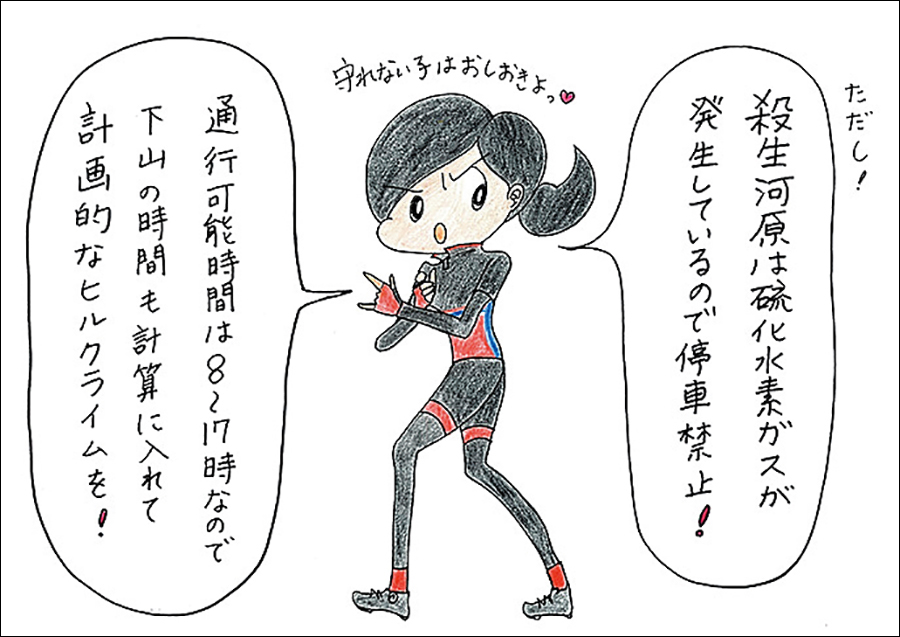 ただし!
殺生河原は硫化水素ガスが
発生しているので停車禁止!
守れない子はおしおきよっ♥
通行可能時間は8〜17時なので
下山の時間も計算に入れて
計画的なヒルクライムを!